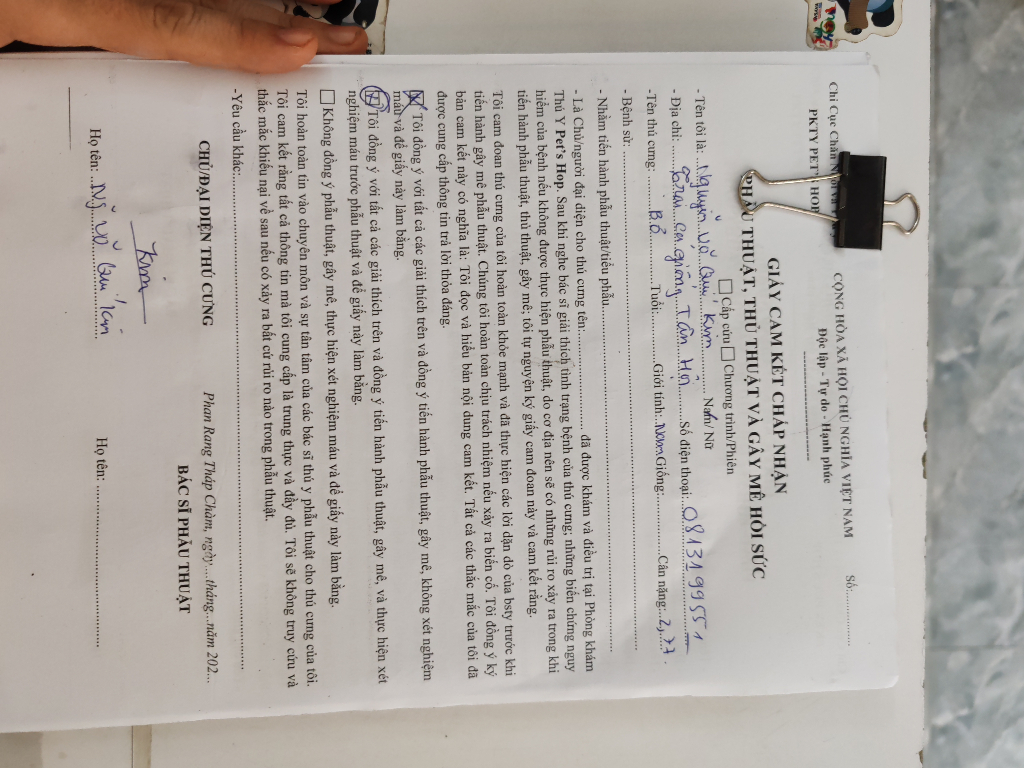 Chi Cục Chăn
PKTY PET'S HOP
CỘNG HÒA XÃ HỘI CHỦ NGHĨA VIỆT NAM
Độc lập - Tự do - Hạnh phúc
Số:
GIẤY CAM KẾT CHẤP NHẬN
PHẪU THUẬT, THỦ THUẬT VÀ GÂY MÊ HỒI SỨC
Cấp cứu Chương trình/Phiên
- Tên tôi là: Nguyễn Võ Kim Nam/ Nữ
- Địa chỉ: Tân Hội Số điện thoại: 0813199551
-Tên thú cưng: Bỏ Tuổi: Giới tính: Nam Giống: Cân nặng: 2,77
- Bệnh sử:
- Nhằm tiến hành phẫu thuật/tiểu phẫu
- Là Chủ/người đại diện cho thú cưng tên: đã được khám và điều trị tại Phòng khám
Thú Y Pet's Hop. Sau khi nghe bác sĩ giải thích tình trạng bệnh của thú cưng; những biến chứng nguy
hiểm của bệnh nếu không được thực hiện phẫu thuật, do cơ địa nên sẽ có những rủi ro xảy ra trong khi
tiến hành phẫu thuật, thủ thuật, gây mê; tôi tự nguyện ký giấy cam đoan này và cam kết rằng.
Tôi cam đoan thú cưng của tôi hoàn toàn khỏe mạnh và đã thực hiện các lời dặn dò của bsty trước khi
tiến hành gây mê phẫu thuật. Chúng tôi hoàn toàn chịu trách nhiệm nếu xảy ra biến cố. Tôi đồng ý ký
bản cam kết này có nghĩa là: Tôi đọc và hiểu bản nội dung cam kết. Tất cả các thắc mắc của tôi đã
được cung cấp thông tin trả lời thỏa đáng.
Tôi đồng ý với tất cả các giải thích trên và đồng ý tiến hành phẫu thuật, gây mê, không xét nghiệm
máu và để giấy này làm bằng.
Tôi đồng ý với tất cả các giải thích trên và đồng ý tiến hành phẫu thuật, gây mê, và thực hiện xét
nghiệm máu trước phẫu thuật và để giấy này làm bằng.
Không đồng ý phẫu thuật, gây mê, thực hiện xét nghiệm máu và để giấy này làm bằng.
Tôi hoàn toàn tin vào chuyên môn và sự tận tâm của các bác sĩ thú y phẫu thuật cho thú cưng của tôi.
Tôi cam kết rằng tất cả thông tin mà tôi cung cấp là trung thực và đầy đủ. Tôi sẽ không truy cứu và
thắc mắc khiếu nại về sau nếu có xảy ra bất cứ rủi ro nào trong phẫu thuật.
-Yêu cầu khác:
Phan Rang Tháp Chàm, ngày....tháng...năm 202...
CHỦ/ĐẠI DIỆN THÚ CƯNG
BÁC SĨ PHẪU THUẬT
Kim
Họ tên: Ng Võ Kim
Họ tên: